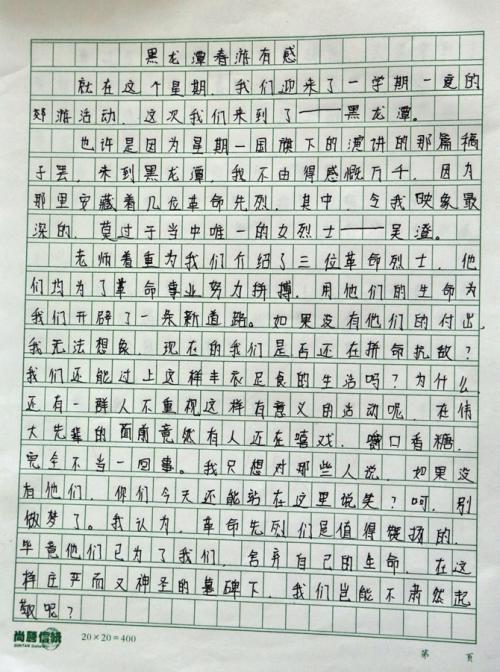 黑龙潭春游有感
就在这个星期，我们迎来了一学期一度的
郊游活动，这次我们来到了——黑龙潭。
也许是因为星期一国旗下的演讲的那篇稿
子罢，来到黑龙潭，我不由得感慨万千，因为
那里安藏着几位革命先烈，其中，令我映象最
深的，莫过于当中唯一的女烈士——吴澄。
老师着重为我们介绍了三位革命烈士，他
们均为了革命事业努力拼搏，用他们的生命为
我们开辟了一条新道路。如果没有他们的付出，
我无法想象，现在的我们是否还在拼命抗敌？
我们还能过上这样丰衣足食的生活吗？为什么
还有一群人不重视这样有意义的活动呢，在伟
大先辈的面前竟然有人还在嘻戏，嚼口香糖，
完全不当一回事。我只想对那些人说，如果没
有他们，你们今天还能站在这里说笑？呵，别
做梦了。我认为，革命先烈们是值得褒扬的，
毕竟他们已为了我们，舍弃自己的生命，在这
样庄严而又神圣的墓碑下，我们岂能不肃然起
敬呢？
尚居信纳 20×20=400
第 页